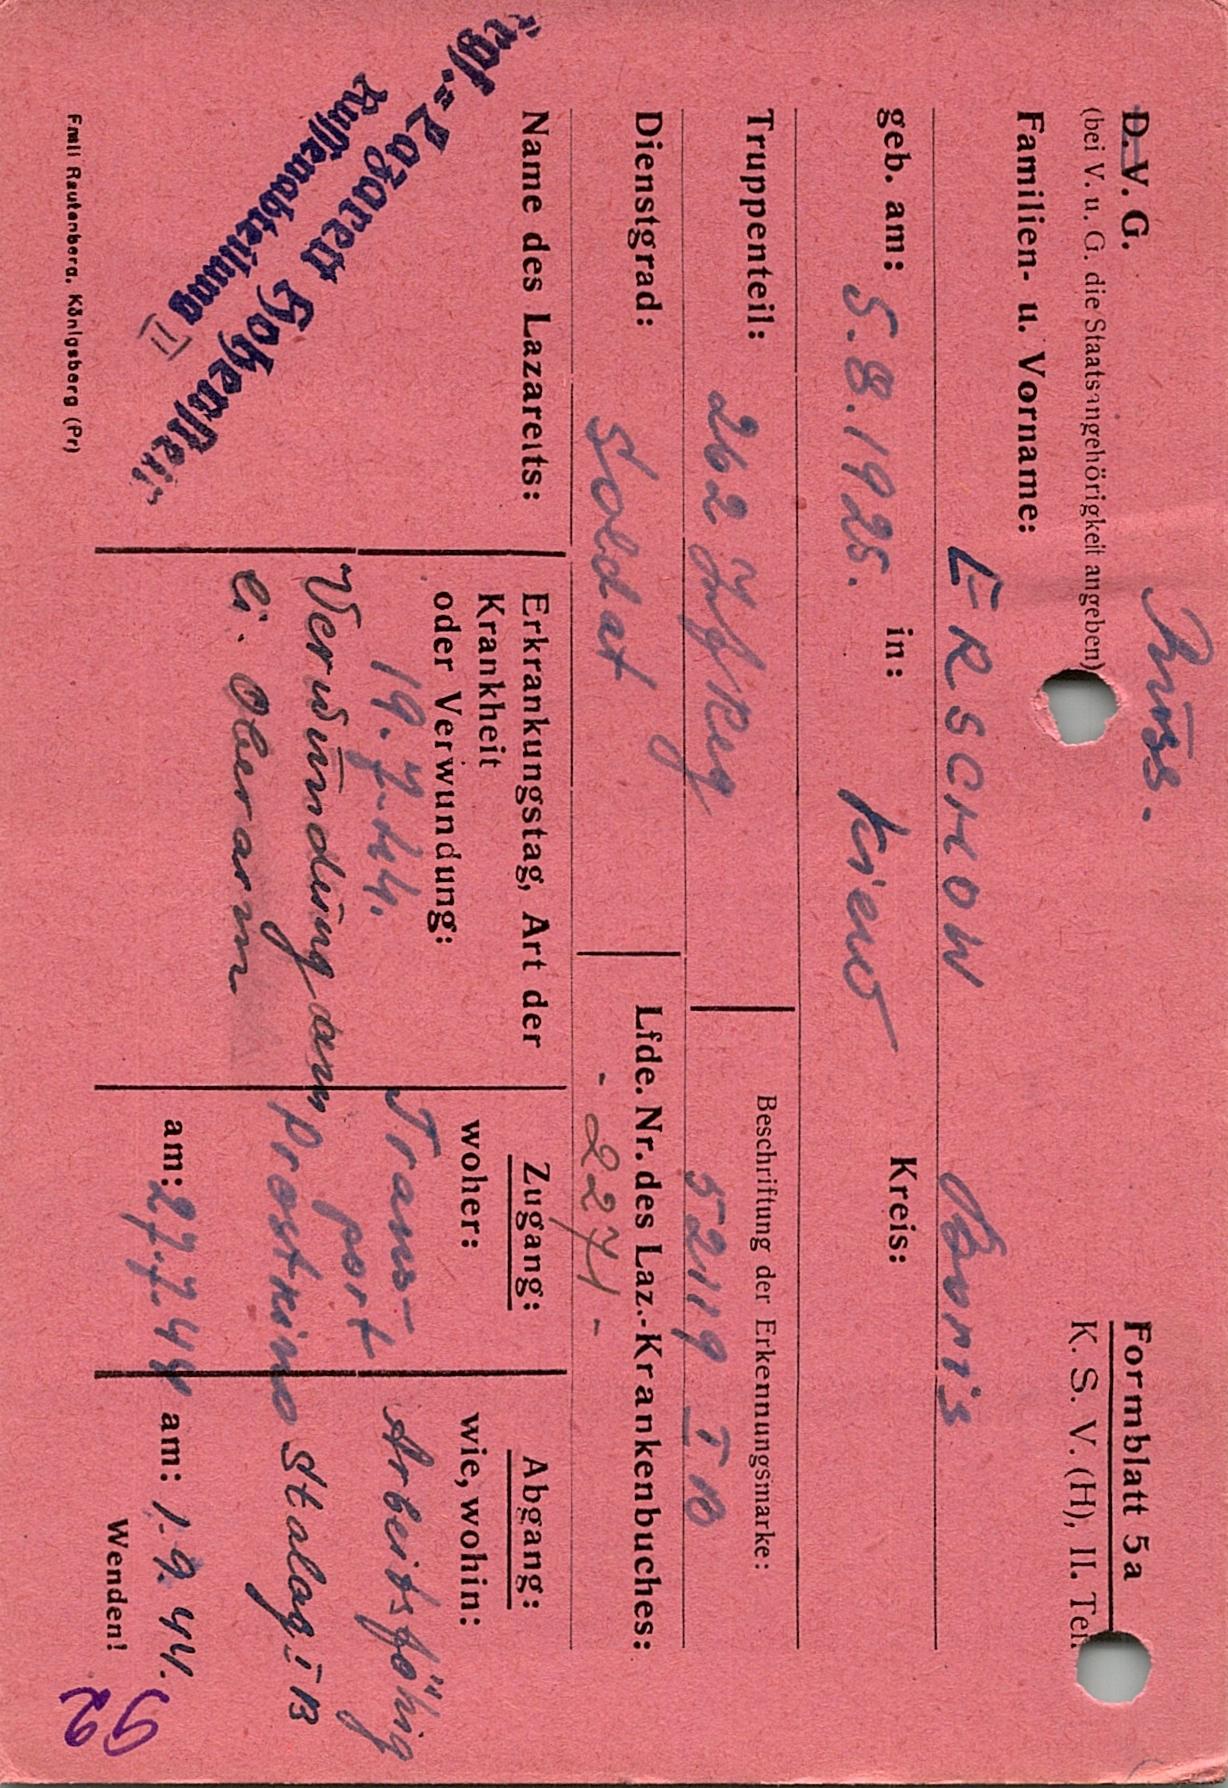 Russ.
D. V. G.
Formblatt 5a
(bei V. u. G. die Staatsangehörigkeit angeben)
K. S. V. (H), II. Teil
Familien- u. Vorname:
ERSCHOW Boris
geb. am: 5.8.1925. in: Kiew Kreis:
Truppenteil: 262 Inf Reg
Beschriftung der Erkennungsmarke:
52119 I B
Dienstgrad: Soldat
Lfde. Nr. des Laz.-Krankenbuches:
- 2271 -
Name des Lazaretts:
Lazarett Hohenstein
Russenabteilung
(II)
Erkrankungstag, Art der
Krankheit
oder Verwundung:
19.7.44.
Verwundung am
li. Oberarm
Zugang:
woher:
Trans-
port
Prostkino
am: 27.7.44
Abgang:
wie, wohin:
Arbeitsfähig
Stalag I B
am: 1.9.44.
Wenden!
92
Emil Rautenberg, Königsberg (Pr)